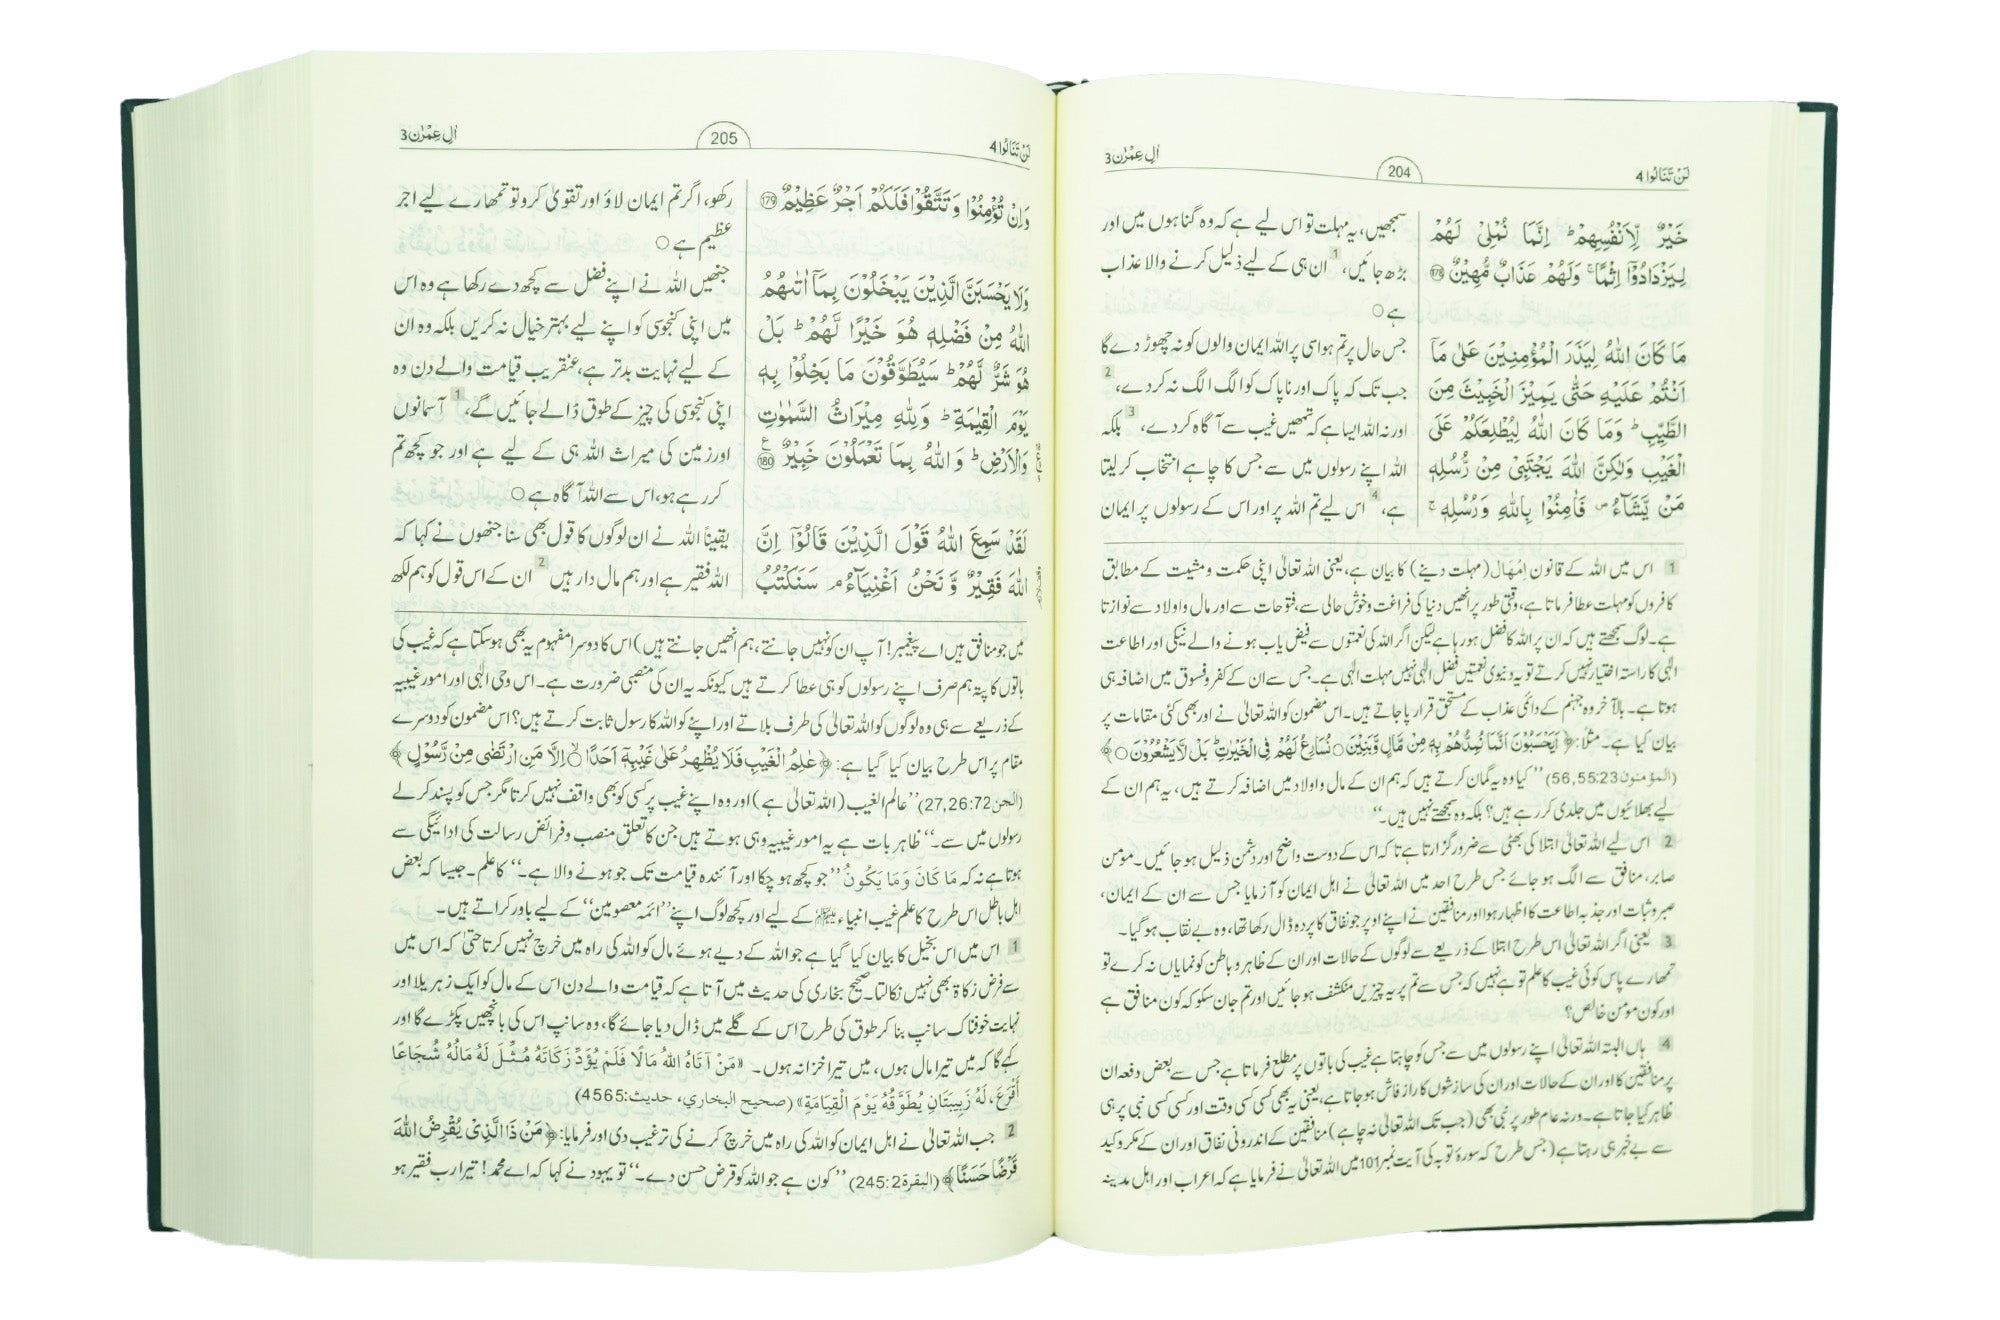 لَنْ تَنَالُوا 4
204
اٰلِ عِمْرٰن 3
خَيْرٌ لِّاَنْفُسِهِمْ ؕ اِنَّمَا نُمْلِيْ لَهُمْ
لِيَزْدَادُوْۤا اِثْمًا ۚ وَلَهُمْ عَذَابٌ مُّهِيْنٌ 178
مَا كَانَ اللّٰهُ لِيَذَرَ الْمُؤْمِنِيْنَ عَلٰى مَاۤ
اَنْتُمْ عَلَيْهِ حَتّٰى يَمِيْزَ الْخَبِيْثَ مِنَ
الطَّيِّبِ ؕ وَمَا كَانَ اللّٰهُ لِيُطْلِعَكُمْ عَلَى
الْغَيْبِ وَلٰكِنَّ اللّٰهَ يَجْتَبِيْ مِنْ رُّسُلِهٖ
مَنْ يَّشَآءُ ۪ فَاٰمِنُوْا بِاللّٰهِ وَرُسُلِهٖ ۚ
سمجھیں، یہ مہلت تو اس لیے ہے کہ وہ گناہوں میں اور
بڑھ جائیں، 1 ان ہی کے لیے ذلیل کرنے والا عذاب
ہے ○
جس حال پر تم ہو اسی پر اللہ ایمان والوں کو نہ چھوڑ دے گا
جب تک کہ پاک اور ناپاک کو الگ الگ نہ کر دے، 2
اور نہ اللہ ایسا ہے کہ تمھیں غیب سے آگاہ کر دے، 3 بلکہ
اللہ اپنے رسولوں میں سے جس کا چاہے انتخاب کر لیتا
ہے، 4 اس لیے تم اللہ پر اور اس کے رسولوں پر ایمان
1 اس میں اللہ کے قانون اِمْهَال (مہلت دینے) کا بیان ہے، یعنی اللہ تعالیٰ اپنی حکمت و مشیت کے مطابق
کافروں کو مہلت عطا فرماتا ہے، وقتی طور پر انھیں دنیا کی فراغت و خوش حالی سے، فتوحات سے اور مال و اولاد سے نوازتا
ہے۔ لوگ سمجھتے ہیں کہ ان پر اللہ کا فضل ہو رہا ہے لیکن اگر اللہ کی نعمتوں سے فیض یاب ہونے والے نیکی اور اطاعت
الٰہی کا راستہ اختیار نہیں کرتے تو یہ دنیوی نعمتیں فضل الٰہی نہیں مہلت الٰہی ہے۔ جس سے ان کے کفر و فسوق میں اضافہ ہی
ہوتا ہے۔ بالآخر وہ جہنم کے دائمی عذاب کے مستحق قرار پا جاتے ہیں۔ اس مضمون کو اللہ تعالیٰ نے اور بھی کئی مقامات پر
بیان کیا ہے۔ مثلاً: ﴿اَيَحْسَبُوْنَ اَنَّمَا نُمِدُّهُمْ بِهٖ مِنْ مَّالٍ وَّبَنِيْنَ ○ نُسَارِعُ لَهُمْ فِي الْخَيْرٰتِ ؕ بَلْ لَّا يَشْعُرُوْنَ ○﴾
(المؤمنون 23:55,56) ’’کیا وہ یہ گمان کرتے ہیں کہ ہم ان کے مال و اولاد میں اضافہ کرتے ہیں، یہ ہم ان کے
لیے بھلائیوں میں جلدی کر رہے ہیں؟ بلکہ وہ سمجھتے نہیں ہیں۔‘‘
2 اس لیے اللہ تعالیٰ ابتلا کی بھٹی سے ضرور گزارتا ہے تاکہ اس کے دوست واضح اور دشمن ذلیل ہو جائیں۔ مومن
صابر، منافق سے الگ ہو جائے جس طرح احد میں اللہ تعالیٰ نے اہل ایمان کو آزمایا جس سے ان کے ایمان،
صبر و ثبات اور جذبہ اطاعت کا اظہار ہوا اور منافقین نے اپنے اوپر جو نفاق کا پردہ ڈال رکھا تھا، وہ بے نقاب ہو گیا۔
3 یعنی اگر اللہ تعالیٰ اس طرح ابتلا کے ذریعے سے لوگوں کے حالات اور ان کے ظاہر و باطن کو نمایاں نہ کرے تو
تمھارے پاس کوئی غیب کا علم تو ہے نہیں کہ جس سے تم پر یہ چیزیں منکشف ہو جائیں اور تم جان سکو کہ کون منافق ہے
اور کون مومن خالص؟
4 ہاں البتہ اللہ تعالیٰ اپنے رسولوں میں سے جس کو چاہتا ہے غیب کی باتوں پر مطلع فرماتا ہے جس سے بعض دفعہ ان
پر منافقین کا اور ان کے حالات اور ان کی سازشوں کا راز فاش ہو جاتا ہے، یعنی یہ بھی کسی کسی وقت اور کسی کسی نبی پر ہی
ظاہر کیا جاتا ہے۔ ورنہ عام طور پر نبی بھی (جب تک اللہ تعالیٰ نہ چاہے) منافقین کے اندرونی نفاق اور ان کے مکر و کید
سے بے خبر ہی رہتا ہے (جس طرح کہ سورۂ توبہ کی آیت نمبر 101 میں اللہ تعالیٰ نے فرمایا ہے کہ اعراب اور اہل مدینہ
لَنْ تَنَالُوا 4
205
اٰلِ عِمْرٰن 3
وَاِنْ تُؤْمِنُوْا وَتَتَّقُوْا فَلَكُمْ اَجْرٌ عَظِيْمٌ 179
وَلَا يَحْسَبَنَّ الَّذِيْنَ يَبْخَلُوْنَ بِمَاۤ اٰتٰىهُمُ
اللّٰهُ مِنْ فَضْلِهٖ هُوَ خَيْرًا لَّهُمْ ؕ بَلْ
هُوَ شَرٌّ لَّهُمْ ؕ سَيُطَوَّقُوْنَ مَا بَخِلُوْا بِهٖ
يَوْمَ الْقِيٰمَةِ ؕ وَلِلّٰهِ مِيْرَاثُ السَّمٰوٰتِ
وَالْاَرْضِ ؕ وَاللّٰهُ بِمَا تَعْمَلُوْنَ خَبِيْرٌ 180
لَقَدْ سَمِعَ اللّٰهُ قَوْلَ الَّذِيْنَ قَالُوْۤا اِنَّ
اللّٰهَ فَقِيْرٌ وَّنَحْنُ اَغْنِيَآءُ ۘ سَنَكْتُبُ
رکھو، اگر تم ایمان لاؤ اور تقویٰ کرو تو تمھارے لیے اجر
عظیم ہے ○
جنھیں اللہ نے اپنے فضل سے کچھ دے رکھا ہے وہ اس
میں اپنی کنجوسی کو اپنے لیے بہتر خیال نہ کریں بلکہ وہ ان
کے لیے نہایت بدتر ہے، عنقریب قیامت والے دن وہ
اپنی کنجوسی کی چیز کے طوق ڈالے جائیں گے، 1 آسمانوں
اور زمین کی میراث اللہ ہی کے لیے ہے اور جو کچھ تم
کر رہے ہو، اس سے اللہ آگاہ ہے ○
یقیناً اللہ نے ان لوگوں کا قول بھی سنا جنھوں نے کہا کہ
اللہ فقیر ہے اور ہم مال دار ہیں 2 ان کے اس قول کو ہم لکھ
میں جو منافق ہیں اے پیغمبر! آپ ان کو نہیں جانتے، ہم انھیں جانتے ہیں) اس کا دوسرا مفہوم یہ بھی ہو سکتا ہے کہ غیب کی
باتوں کا پتہ ہم صرف اپنے رسولوں کو ہی عطا کرتے ہیں کیونکہ یہ ان کی منصبی ضرورت ہے۔ اس وحی الٰہی اور امور غیبیہ
کے ذریعے سے ہی وہ لوگوں کو اللہ تعالیٰ کی طرف بلاتے اور اپنے کو اللہ کا رسول ثابت کرتے ہیں؟ اس مضمون کو دوسرے
مقام پر اس طرح بیان کیا گیا ہے: ﴿عٰلِمُ الْغَيْبِ فَلَا يُظْهِرُ عَلٰى غَيْبِهٖۤ اَحَدًا ○ اِلَّا مَنِ ارْتَضٰى مِنْ رَّسُوْلٍ﴾
(الجن 72:26,27) ’’عالم الغیب (اللہ تعالیٰ ہے) اور وہ اپنے غیب پر کسی کو بھی واقف نہیں کرتا مگر جس کو پسند کر لے
رسولوں میں سے۔‘‘ ظاہر بات ہے یہ امور غیبیہ وہی ہوتے ہیں جن کا تعلق منصب و فرائض رسالت کی ادائیگی سے
ہوتا ہے نہ کہ مَا كَانَ وَمَا يَكُونُ ’’جو کچھ ہو چکا اور آئندہ قیامت تک جو ہونے والا ہے۔‘‘ کا علم۔ جیسا کہ بعض
اہل باطل اس طرح کا علم غیب انبیاء علیہم السلام کے لیے اور کچھ لوگ اپنے ’’ائمہ معصومین‘‘ کے لیے باور کراتے ہیں۔
1 اس میں اس بخیل کا بیان کیا گیا ہے جو اللہ کے دیے ہوئے مال کو اللہ کی راہ میں خرچ نہیں کرتا حتیٰ کہ اس میں
سے فرض زکاۃ بھی نہیں نکالتا۔ صحیح بخاری کی حدیث میں آتا ہے کہ قیامت والے دن اس کے مال کو ایک زہریلا اور
نہایت خوفناک سانپ بنا کر طوق کی طرح اس کے گلے میں ڈال دیا جائے گا، وہ سانپ اس کی بانچھیں پکڑے گا اور
کہے گا کہ میں تیرا مال ہوں، میں تیرا خزانہ ہوں۔ «مَنْ آتَاهُ اللّٰهُ مَالًا فَلَمْ يُؤَدِّ زَكَاتَهُ مُثِّلَ لَهُ مَالُهُ شُجَاعًا
أَقْرَعَ، لَهُ زَبِيبَتَانِ يُطَوَّقُهُ يَوْمَ الْقِيَامَةِ» (صحيح البخاري، حديث:4565)
2 جب اللہ تعالیٰ نے اہل ایمان کو اللہ کی راہ میں خرچ کرنے کی ترغیب دی اور فرمایا: ﴿مَنْ ذَا الَّذِيْ يُقْرِضُ اللّٰهَ
قَرْضًا حَسَنًا﴾ (البقرة 2:245) ’’کون ہے جو اللہ کو قرض حسن دے۔‘‘ تو یہود نے کہا کہ اے محمد! تیرا رب فقیر ہو